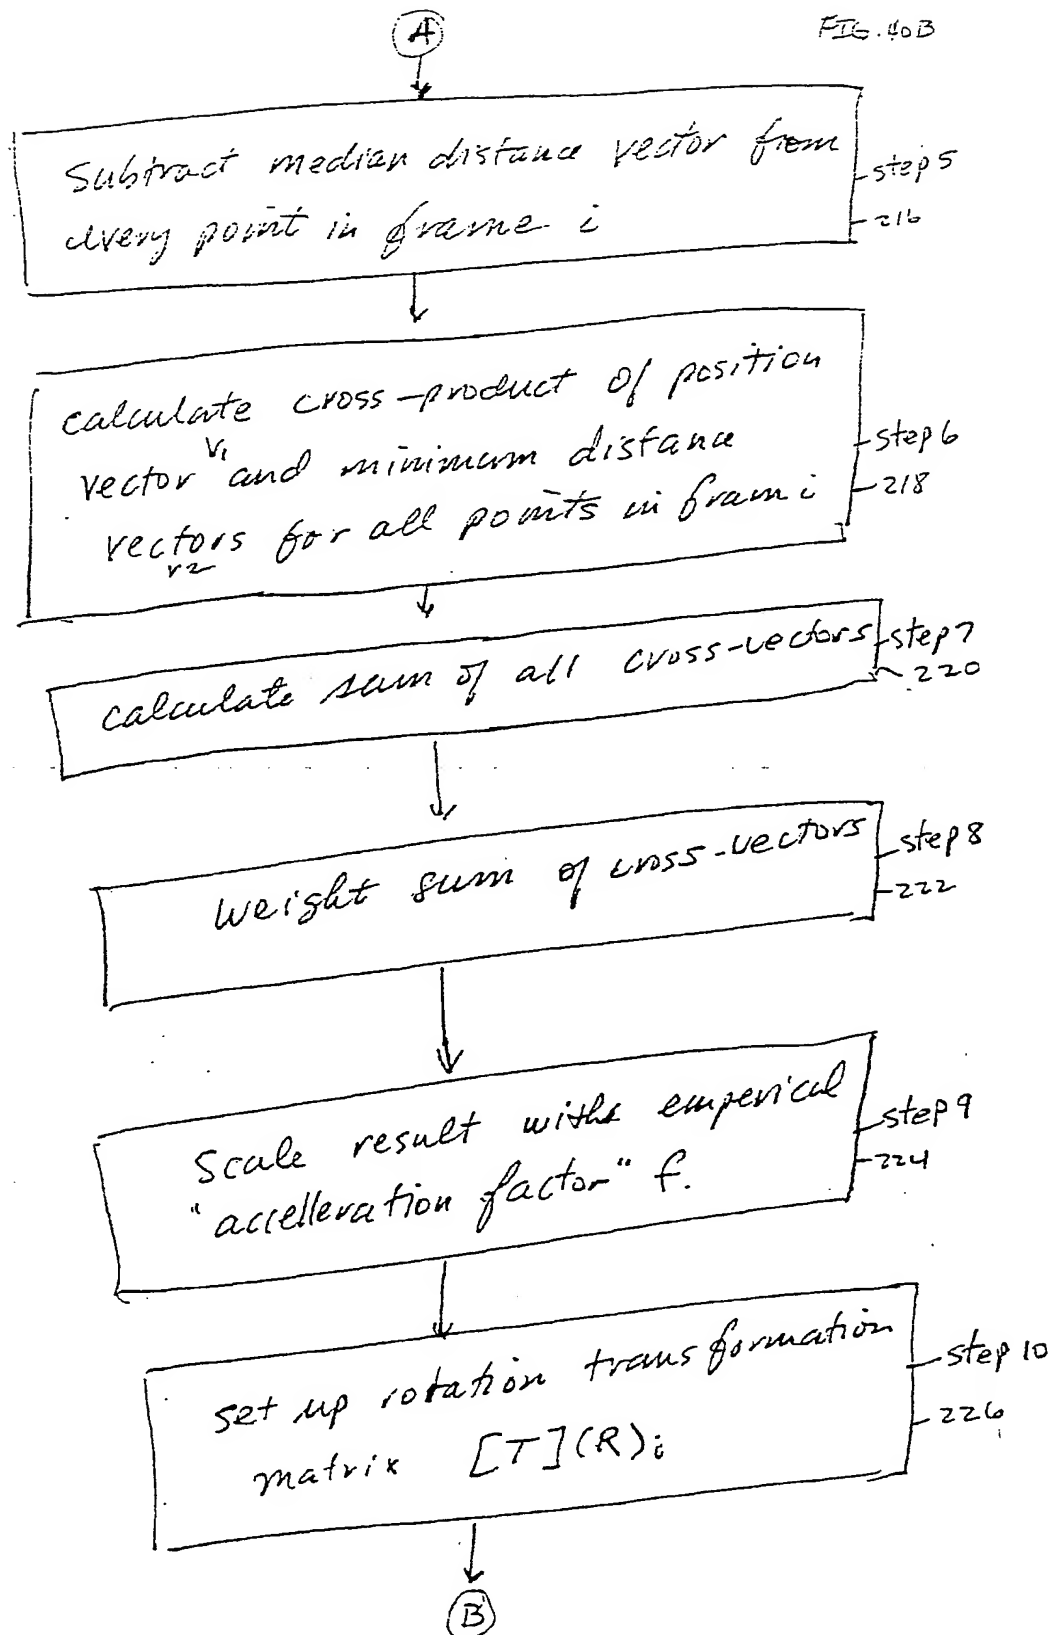 A
FIG. 40B
Subtract median distance vector from
every point in frame i
step 5
216
calculate cross-product of position
vector v1 and minimum distance
vectors for all points in fram i
v2
step 6
218
calculate sum of all cross-vectors
step 7
220
weight sum of cross-vectors
step 8
222
Scale result with emperical
"accelleration factor" f.
step 9
224
set up rotation transformation
matrix [T](R)i
step 10
226
B